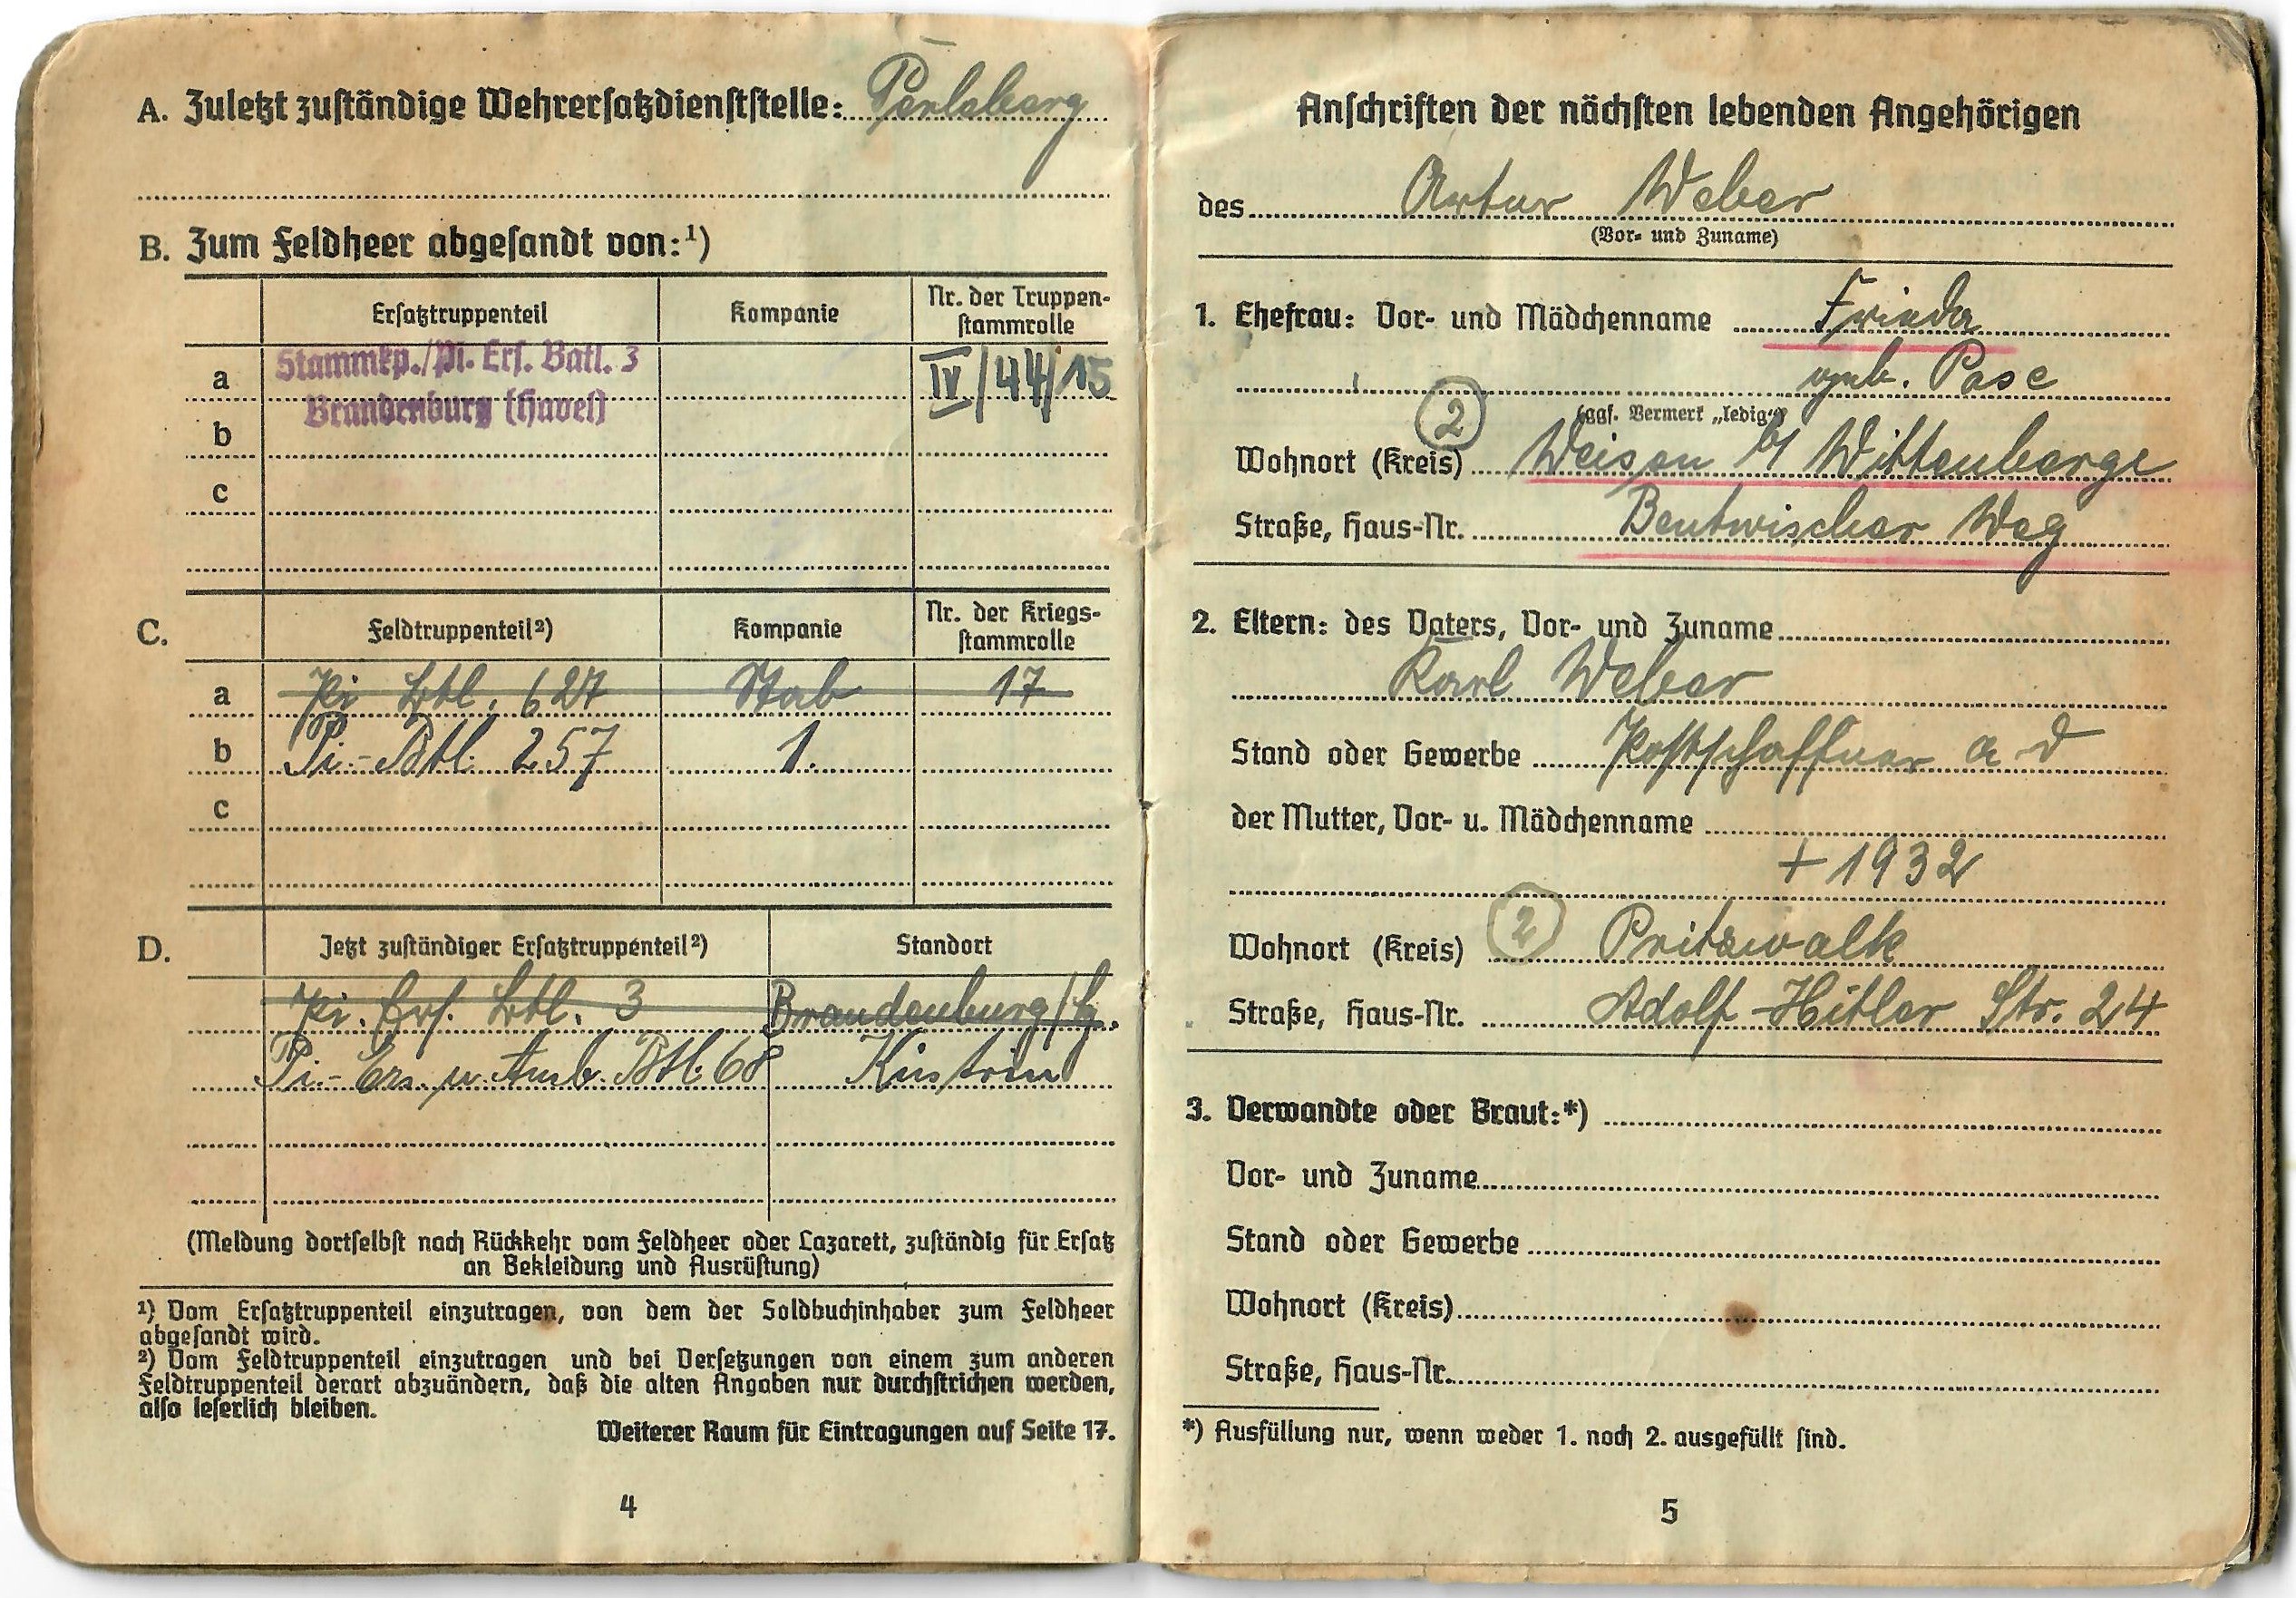 A. Zuletzt zuständige Wehrersatzdienststelle: Perleberg
B. Zum Feldheer abgesandt von:¹)
Ersatztruppenteil Kompanie Nr. der Truppen-
stammrolle
a Stammkp./Pi. Ers. Batl. 3 IV/44/15
Brandenburg (Havel)
b
c
C. Feldtruppenteil²) Kompanie Nr. der Kriegs-
stammrolle
a Pi Btl. 627 Stab 17
b Pi.-Btl. 257 1.
c
D. Jetzt zuständiger Ersatztruppenteil²) Standort
Pi. Ers. Btl. 3 Brandenburg/H.
Pi.-Ers. u. Ausb. Btl. 68 Küstrin
(Meldung dortselbst nach Rückkehr vom Feldheer oder Lazarett, zuständig für Ersatz
an Bekleidung und Ausrüstung)
¹) Vom Ersatztruppenteil einzutragen, von dem der Soldbuchinhaber zum Feldheer
abgesandt wird.
²) Vom Feldtruppenteil einzutragen und bei Versetzungen von einem zum anderen
Feldtruppenteil derart abzuändern, daß die alten Angaben nur durchstrichen werden,
also leserlich bleiben.
Weiterer Raum für Eintragungen auf Seite 17.
4
Anschriften der nächsten lebenden Angehörigen
des Artur Weber
(Vor- und Zuname)
1. Ehefrau: Vor- und Mädchenname Frieda
geb. Pase
(ggf. Vermerk „ledig“)
2
Wohnort (Kreis) Weisen b/ Wittenberge
Straße, Haus-Nr. Bentwischer Weg
2. Eltern: des Vaters, Vor- und Zuname
Karl Weber
Stand oder Gewerbe Postschaffner a D
der Mutter, Vor- u. Mädchenname
+ 1932
Wohnort (Kreis) 2 Pritzwalk
Straße, Haus-Nr. Adolf-Hitler Str. 24
3. Verwandte oder Braut:*)
Vor- und Zuname
Stand oder Gewerbe
Wohnort (Kreis)
Straße, Haus-Nr.
*) Ausfüllung nur, wenn weder 1. noch 2. ausgefüllt sind.
5